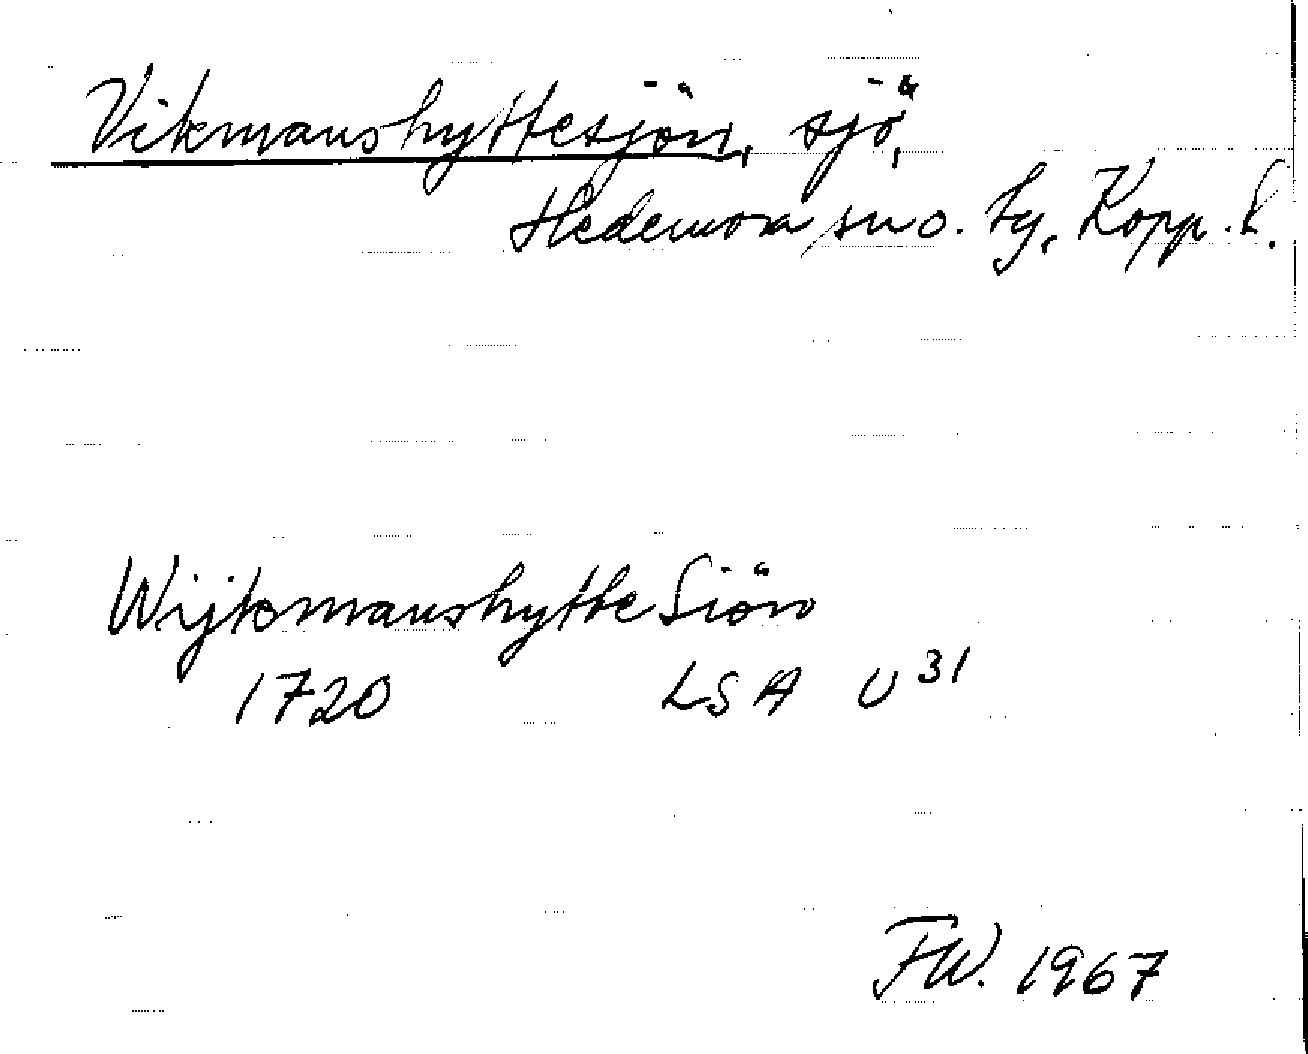 Vikmanshyttesjön, sjö,
Hedemora sn o. tg, Kopp. l.
Wijkmanshytte Siön
1720 LSA U 31
FW. 1967